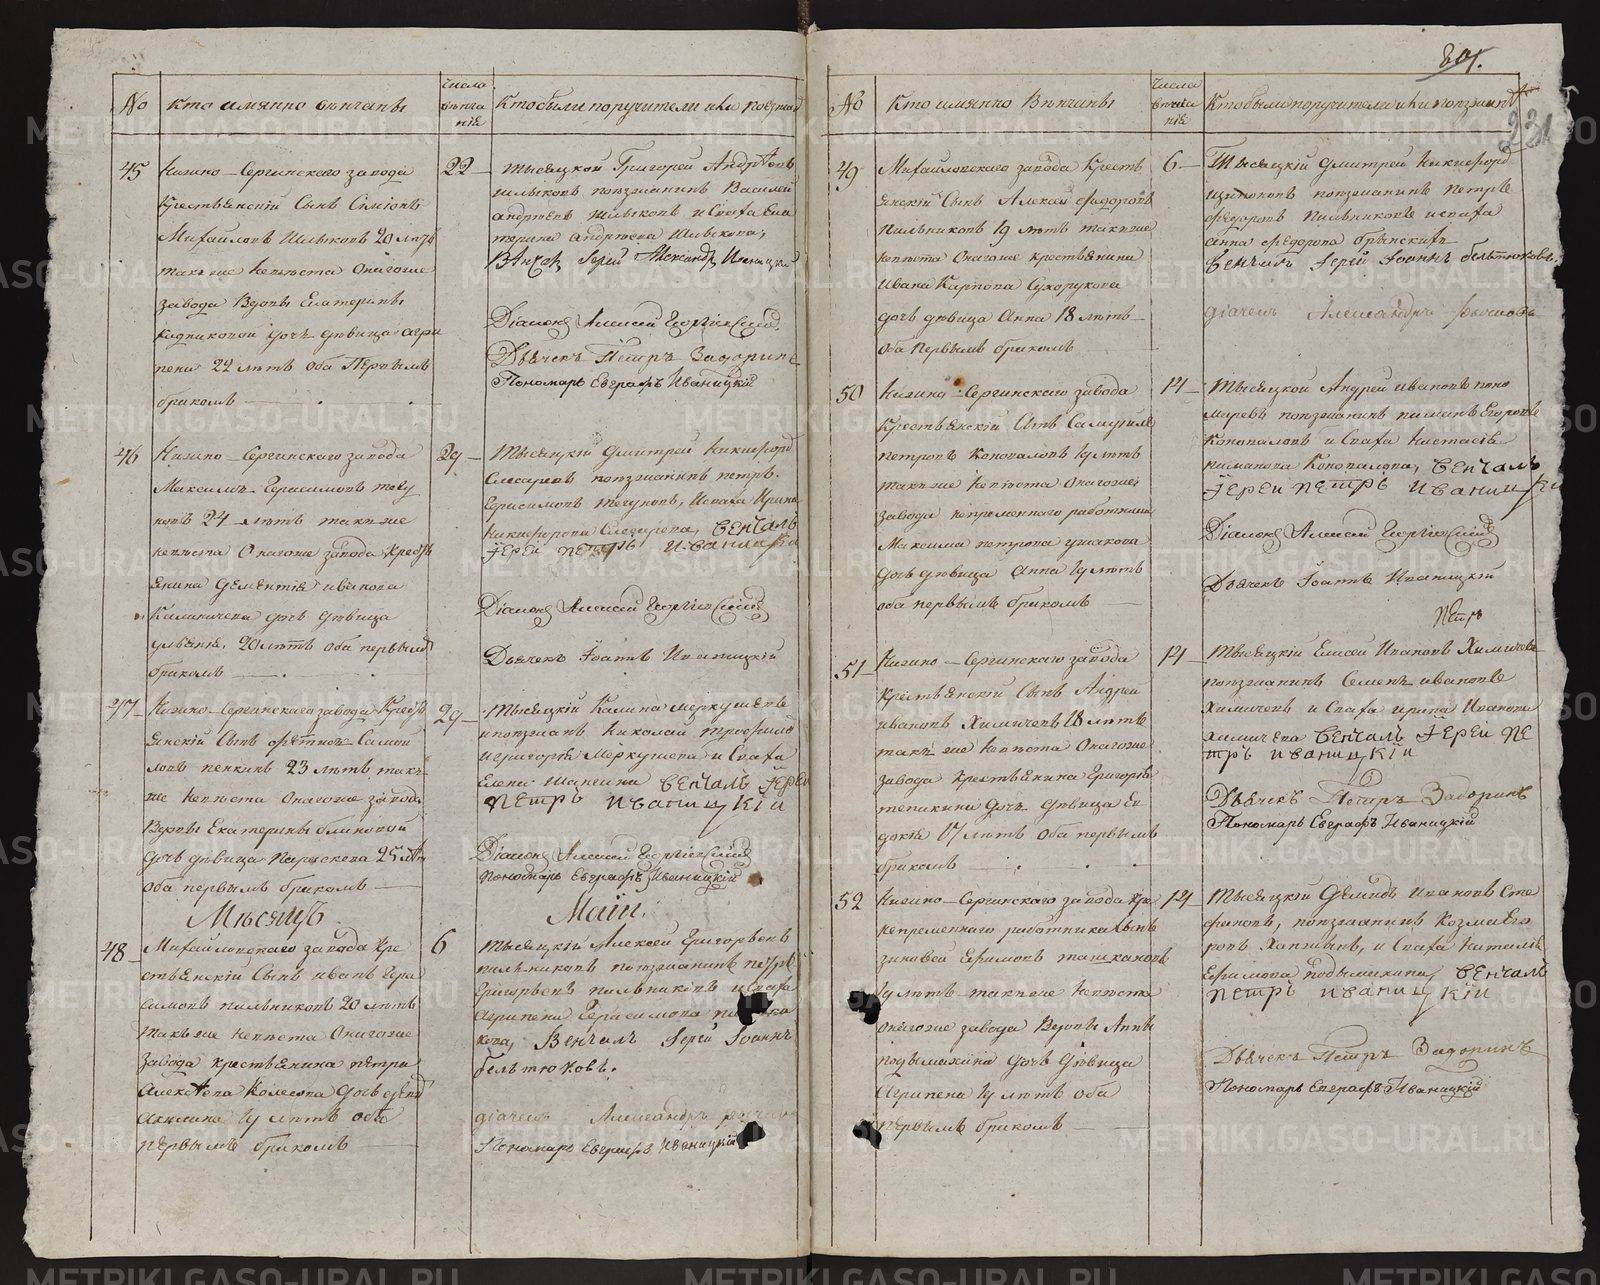 № Кто имянно венчаны
Числа венчания
Кто были поручители или поезжан
45
Нижно-Сергинскаго завода
Крестьянский Сынъ Симіонъ
Михайловъ Шилыковъ 20 летъ
такъ же невеста Онагоже
завода Вдовы Екатерины
дочь девица Агри
пена 22 летъ оба Первымъ
бракомъ
22
Тысяцкой Григорей Андреевъ
Шилыковъ поезжанинъ Василей
Андреевъ Шилыковъ и Сваха Ека
терина Андреева Шилыкова,
Венчалъ Іерей Александръ Иваницкий
Діаконъ Алексей Георгіевский
Дьячекъ Петръ Задоринъ
Пономарь Евграфъ Иваницкій
46
Нижно-Сергинскаго завода
Максимъ Герасимовъ
24 летъ такъ же
невеста Онагоже завода Кресть
янина Дементія Иванова
дочь девица
Ульянія, 20 летъ оба первымъ
бракомъ
29
Тысяцкій Дмитрей Никифоровъ
Слесаревъ поезжанинъ Петръ
Герасимовъ и Сваха Ирина
Никифорова Слесарева, Венчалъ
Іерей Петръ Иваницкій
Діаконъ Алексей Георгіевский
Дьячекъ Іоаннъ Иваницкій
47
Нижно-Сергинскаго завода Кресть
янский Сынъ
Пенкинъ 23 летъ, такъ
же невеста Онагоже завода
Вдовы Екатерины Блиновой
дочь девица Параскева 25 летъ
оба первымъ бракомъ
29
Тысяцкій Калина Меркурьевъ
и поезжанъ Николай
и Григорія Меркурьева и Сваха
Елена Венчалъ Іерей
Петръ Иваницкій
Діаконъ Алексей Георгіевский
Пономарь Евграфъ Иваницкій
Месяцъ Маій.
48
Михайловскаго завода Кре
стьянский Сынъ Иванъ Гера
симовъ Пильниковъ 20 летъ
такъ же невеста Онагоже
завода крестьянина Петра
Алексеева Колесова дочь девица
Акилина 19 летъ оба
первымъ бракомъ
6
Тысяцкій Алексей Григорьевъ
Пильниковъ поезжанинъ Петръ
Григорьевъ Пильниковъ и Сваха
Агрипена Герасимова
Венчалъ Іерей Іоаннъ
Бельтюковъ.
діаченъ Александръ
Пономарь Евграфъ Иваницкій
801.
231
№ Кто имянно Венчаны
Числа венчания
Кто были поручители или поезжан
49
Михайловскаго завода Кресть
янский Сынъ Алексей Федоровъ
Пильниковъ 19 летъ такъ же
невеста Онагоже крестьянина
Ивана Карпова Сухорукова
дочь девица Анна 18 летъ
оба первымъ бракомъ
6
Тысяцкій Дмитрей Никифоровъ
поезжанинъ Петръ
Федоровъ Пильниковъ и Сваха
Анна Федорова
Венчалъ Іерей Іоаннъ Бельтюковъ.
діаченъ Александръ
50
Нижно-Сергинскаго завода
Крестьянский Сынъ Самуилъ
Петровъ Коноваловъ 19 летъ
такъ же невеста Онагоже
завода непременнаго работника
Максима Петрова Ушакова
дочь девица Анна 19 летъ
оба первымъ бракомъ
14
Тысяцкой Андрей Ивановъ Поно
маревъ поезжанинъ Пиманъ Егоровъ
Коноваловъ и Сваха Настасія
Пиманова Коновалова, Венчалъ
Іерей Петръ Иваницкій
Діаконъ Алексей Георгіевский
Дьячекъ Іоаннъ Иваницкій
Петръ
51
Нижно-Сергинскаго завода
Крестьянский Сынъ Андрей
Ивановъ Химичевъ 18 летъ
такъ же невеста Онагоже
завода крестьянина Григорья
Тепикина дочь девица Ев
докія 17 летъ оба первымъ
бракомъ
14
Тысяцкій Елисей Ивановъ Химичевъ
поезжанинъ Семенъ Ивановъ
Химичевъ и Сваха Ирина Иванова
Химичева Венчалъ Іерей Пе
тръ Иваницкій
Дьячекъ Петръ Задоринъ
Пономарь Евграфъ Иваницкій
52
Нижно-Сергинскаго завода
непременнаго работника Сынъ
Зиновей Ефимовъ Ташкановъ
19 летъ такъ же невеста
онагоже завода Вдовы Анны
Подымахина дочь девица
Агрипена 19 летъ оба
первымъ бракомъ
14
Тысяцкій Демидъ Ивановъ Сте
фановъ, поезжанинъ Козма Его
ровъ и Сваха Наталія
Ефимова Подымахина, Венчалъ
Петръ Иваницкій
Дьячекъ Петръ Задоринъ
Пономарь Евграфъ Иваницкій
METRIKI.GASO-URAL.RU